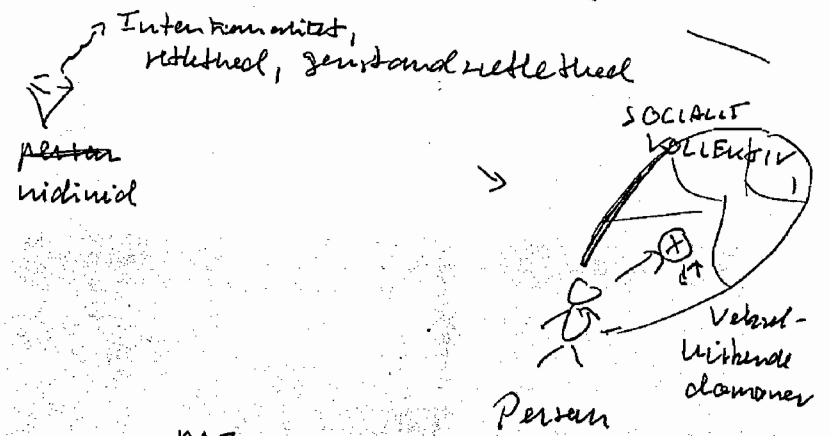 Intentionalitet,
rettethed, genstandsrettethed
person
individ
SOCIALIT
KOLLEKTIV
Veksel-
virkende
domæner
Person